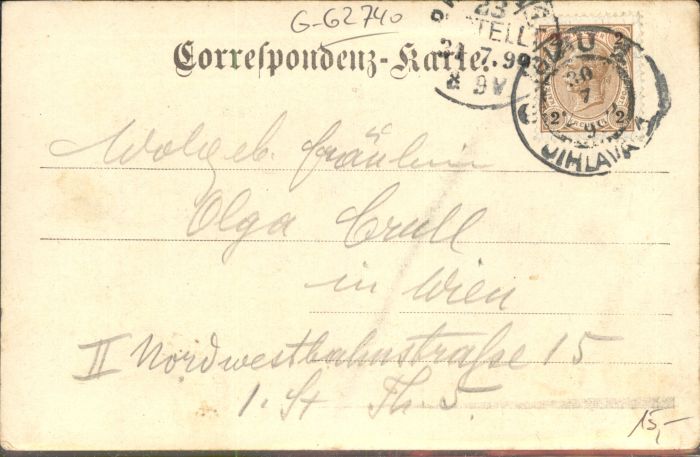 G-62740
Correspondenz-Karte.
23
21 7.99
8 9V
IGLAU
20
7
JIHLAVA
2 2
Wolgeb. Fräulein
Olga Crull
in Wien
II Nordwestbahnstraße 15
1. St Th. 5.
15,-